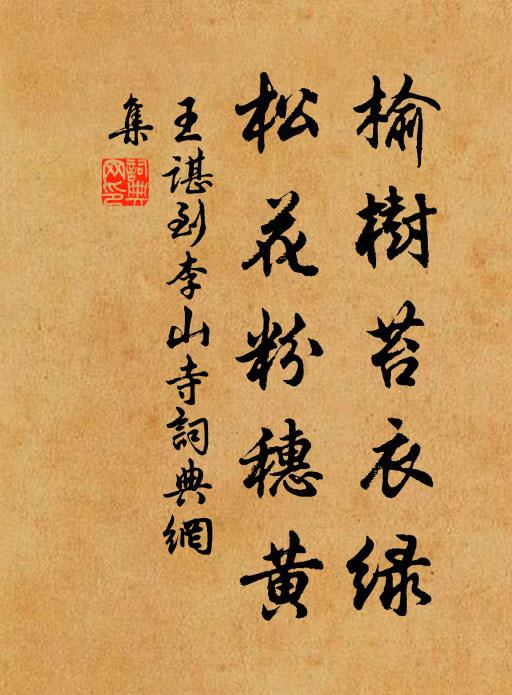 榆樹苔衣綠
松花粉穗黃
王諶到李山寺詞典網
集
詞典網印